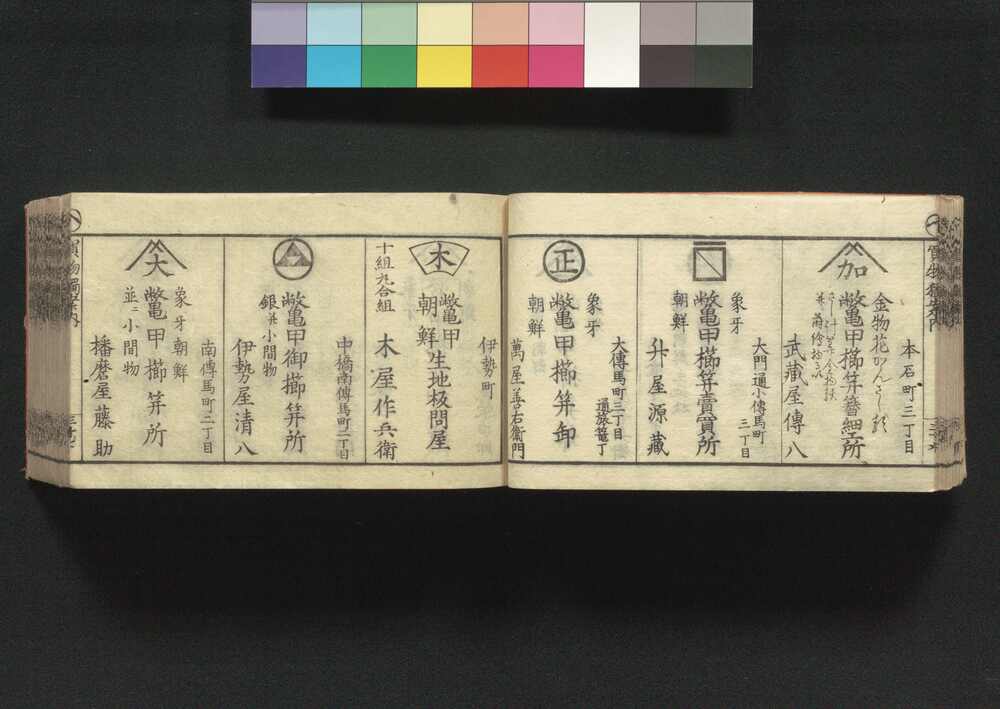 加
本石町三丁目
金物花かんざし類
鼈甲櫛笄簪細工所
武蔵屋傳八
大門通小傳馬町
三丁目
象牙
朝鮮
鼈甲櫛笄賣買所
舛屋源蔵
正
大傳馬町三丁目
通旅篭丁
象牙
朝鮮
鼈甲櫛笄卸
萬屋善右衛門
木
伊勢町
鼈甲
朝鮮
生地板問屋
十組九合組
木屋作兵衛
中橋南傳馬町二丁目
鼈甲御櫛笄所
銀並小間物
伊勢屋清八
大
南傳馬町二丁目
象牙朝鮮
鼈甲櫛笄所
並ニ小間物
播磨屋藤助
買物獨案内